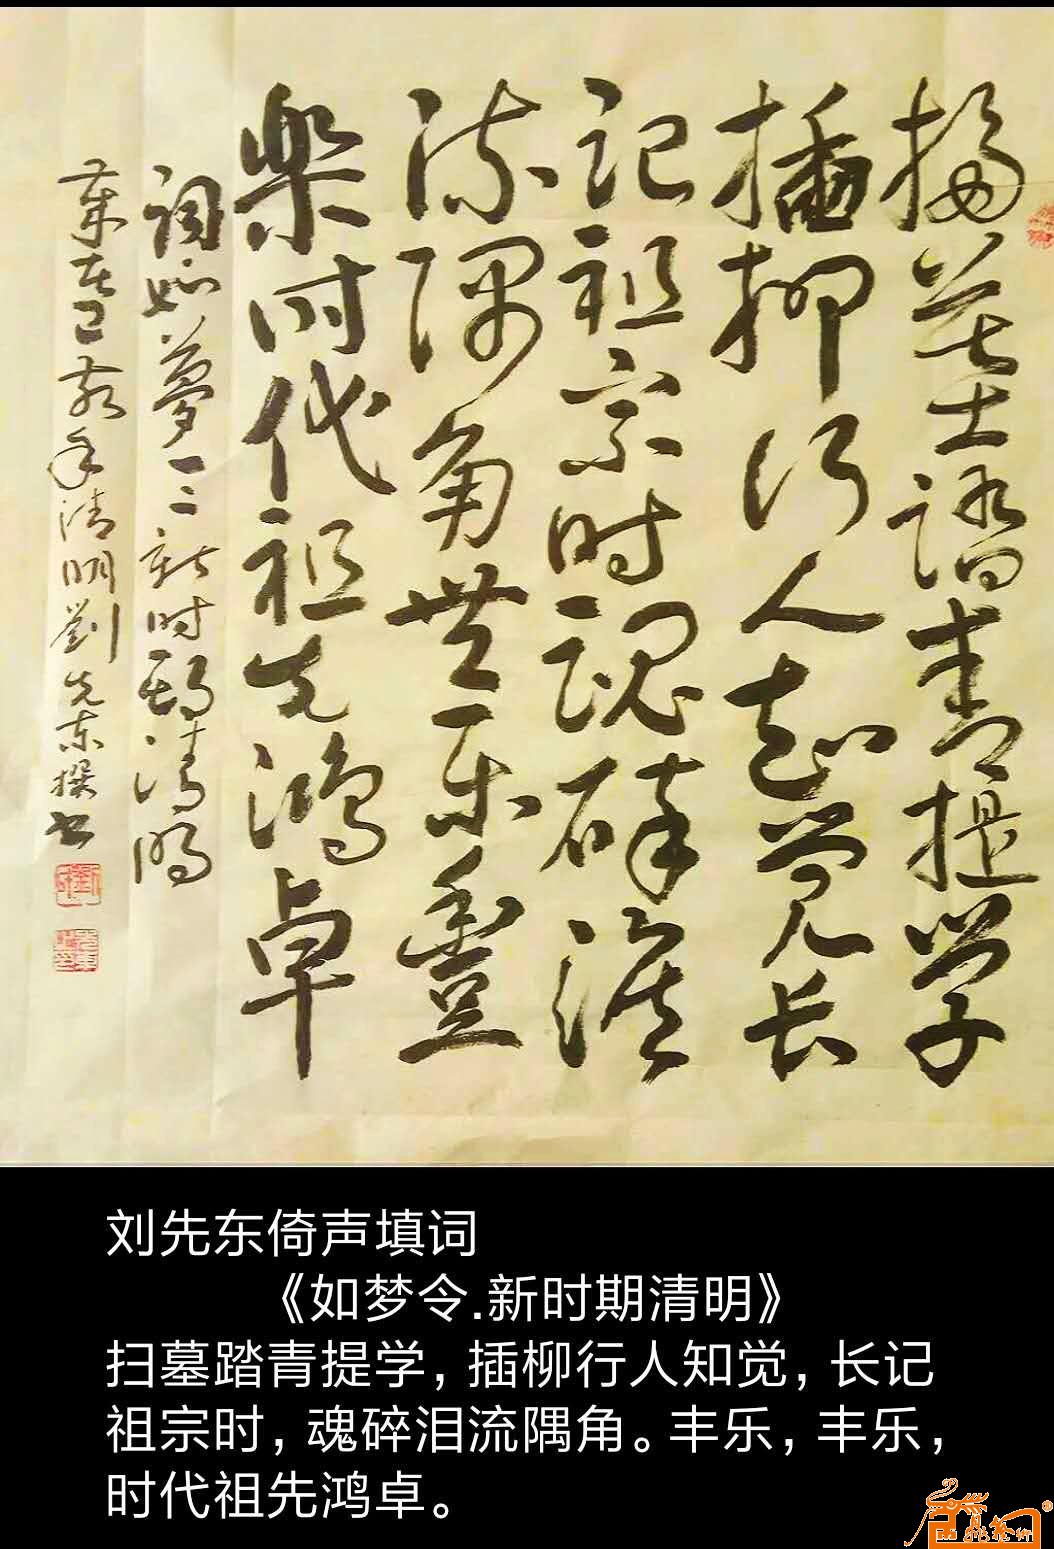 掃墓踏青提学
插柳行人知觉长
记祖宗时魂碎泪
流隅角豊乐豊
樂时代祖先鸿卓
词如夢令新时期清明
岁在己亥年清明劉先东撰书
刘先东倚声填词
《如梦令.新时期清明》
扫墓踏青提学，插柳行人知觉，长记
祖宗时，魂碎泪流隅角。丰乐，丰乐，
时代祖先鸿卓。